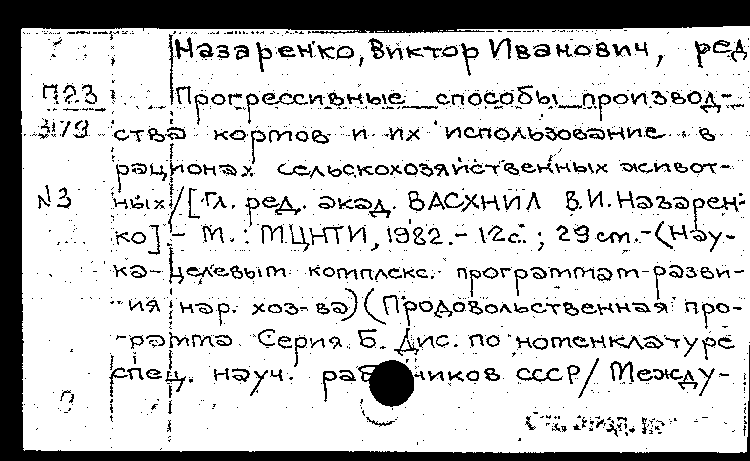 Назаренко, Виктор Иванович, ред
П23 Прогрессивные способы производ-
3179 ства кормов и их использование в
рационах сельскохозяйственных живот-
№3 ных/[Гл. ред. акад. ВАСХНИЛ В.И. Назарен-
ко]. - М.: МЦНТИ, 1982. - 12с.; 29 см. - (Нау-
ка - целевым комплекс. программам разви-
ия нар. хоз-ва) (Продовольственная про-
рамма. Серия Б. Дис. по номенклатуре
спец. науч. раб ников СССР/Между-